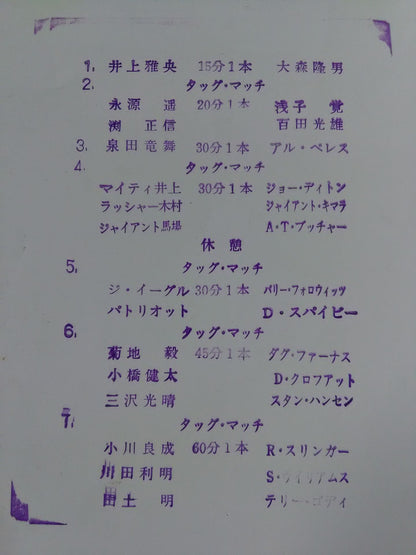 1. 井上雅央 15分1本 大森隆男
2. タッグ・マッチ
永源遥 20分1本 浅子覚
渕正信 百田光雄
3. 泉田竜舞 30分1本 アル・ペレス
4. タッグ・マッチ
マイティ井上 30分1本 ジョー・ディトン
ラッシャー木村 ジャイアント・キマラ
ジャイアント馬場 A・T・ブッチャー
休憩
5. タッグ・マッチ
ジ・イーグル 30分1本 バリー・フォロウィッツ
パトリオット D・スパイビー
6. タッグ・マッチ
菊地毅 45分1本 ダグ・ファーナス
小橋健太 D・クロファット
三沢光晴 スタン・ハンセン
7. タッグ・マッチ
小川良成 60分1本 R・スリンガー
川田利明 S・ウイリアムス
田土明 テリー・ゴディ